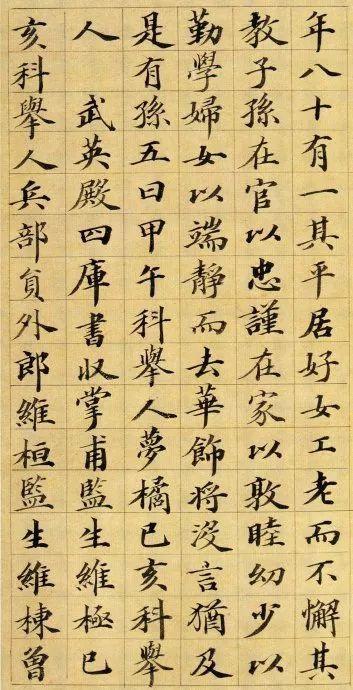 年八十有一其平居好女工老而不懈其
教子孫在官以忠謹在家以敦睦幼少以
勤學婦女以端靜而去華飾将沒言猶及
是有孫五曰甲午科舉人夢橘己亥科舉
人武英殿四庫書収掌甫監生維極己
亥科舉人兵部負外郎維桓監生維棟曾